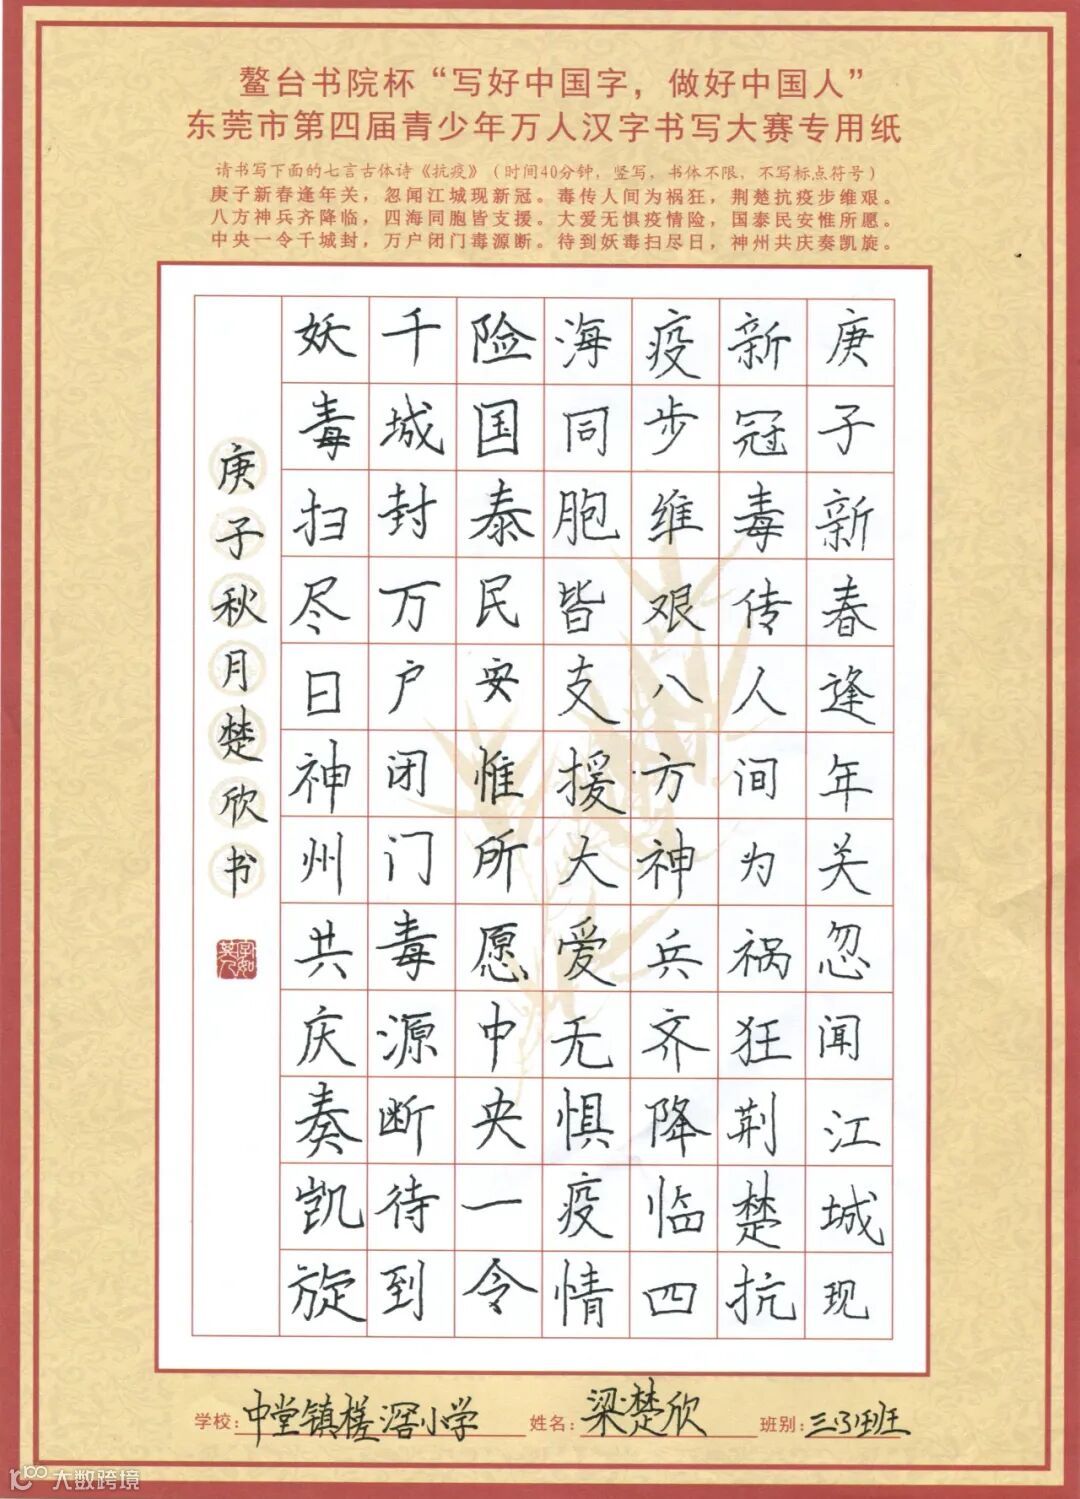 鳌台书院杯“写好中国字，做好中国人”
东莞市第四届青少年万人汉字书写大赛专用纸
请书写下面的七言古体诗《抗疫》（时间40分钟，竖写，书体不限，不写标点符号）
庚子新春逢年关，忽闻江城现新冠。毒传人间为祸狂，荆楚抗疫步维艰。
八方神兵齐降临，四海同胞皆支援。大爱无惧疫情险，国泰民安惟所愿。
中央一令千城封，万户闭门毒源断。待到妖毒扫尽日，神州共庆奏凯旋。
庚子新春逢年关忽闻江城现
新冠毒传人间为祸狂荆楚抗
疫步维艰八方神兵齐降临四
海同胞皆支援大爱无惧疫情
险国泰民安惟所愿中央一令
千城封万户闭门毒源断待到
妖毒扫尽日神州共庆奏凯旋
庚子秋月楚欣书
学校：中堂镇槎滘小学 姓名：梁楚欣 班别：三（3）班
大数跨境